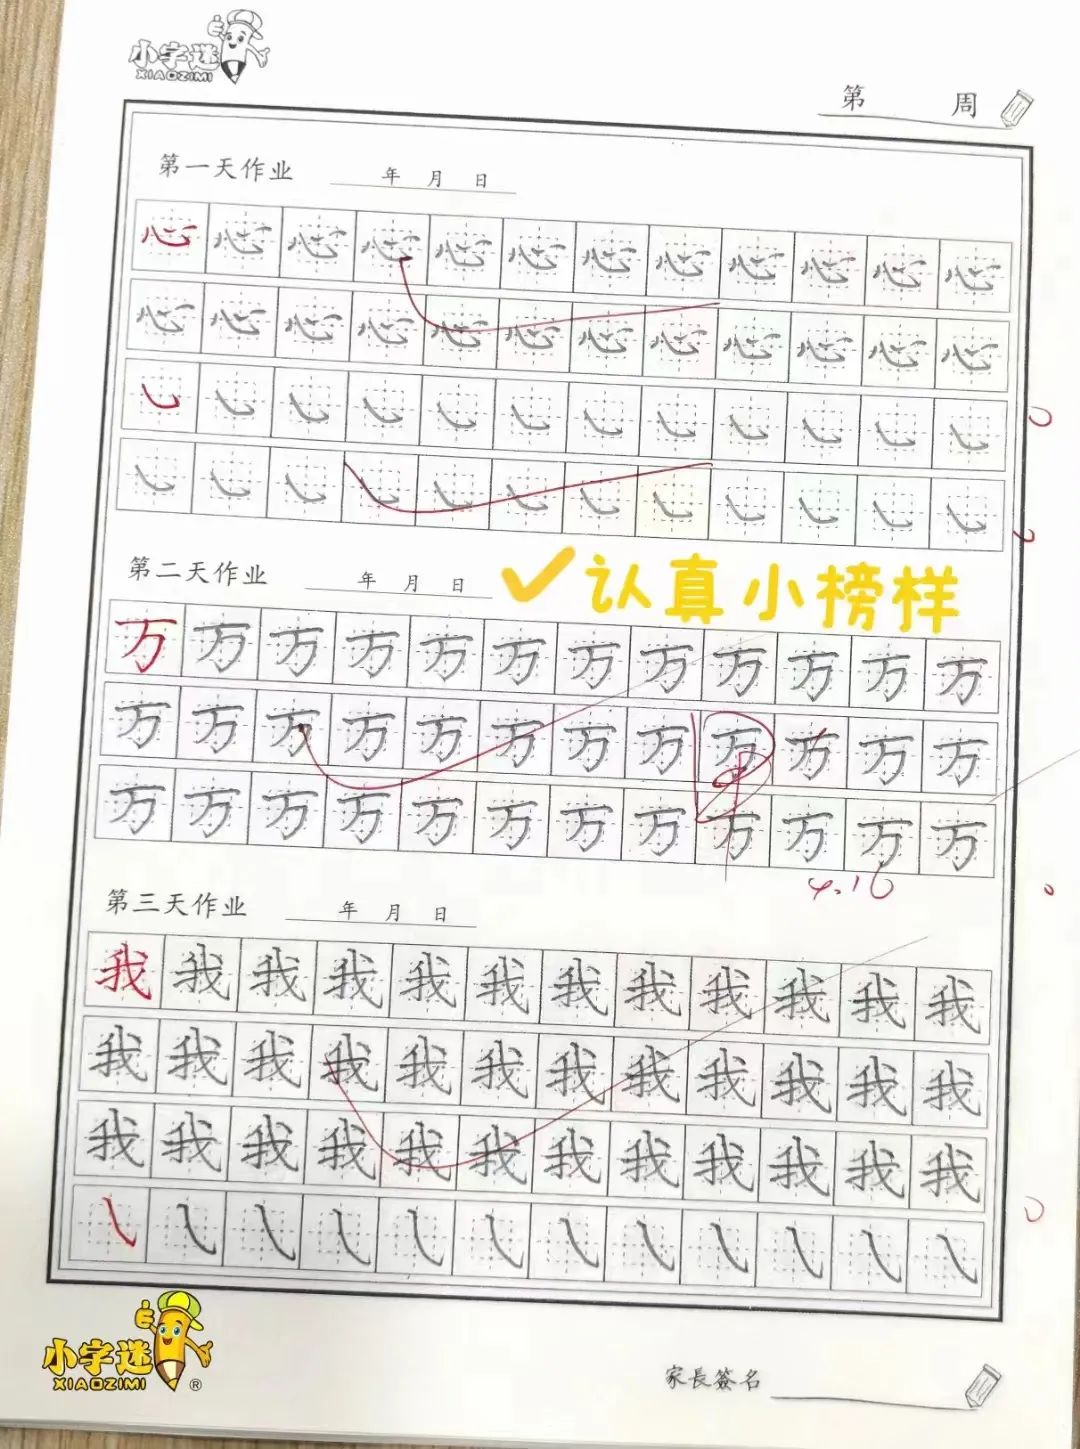 小字迷
XIAOZIMI
第 周
第一天作业 年 月 日
心 心 心 心 心 心 心 心 心 心 心 心
心 心 心 心 心 心 心 心 心 心 心 心
第二天作业 年 月 日
✓认真小榜样
万 万 万 万 万 万 万 万 万 万 万 万
万 万 万 万 万 万 万 万 万 万 万 万
万 万 万 万 万 万 万 万 万 万 万 万
4.16
第三天作业 年 月 日
我 我 我 我 我 我 我 我 我 我 我 我
我 我 我 我 我 我 我 我 我 我 我 我
我 我 我 我 我 我 我 我 我 我 我 我
小字迷
XIAOZIMI®
家長簽名